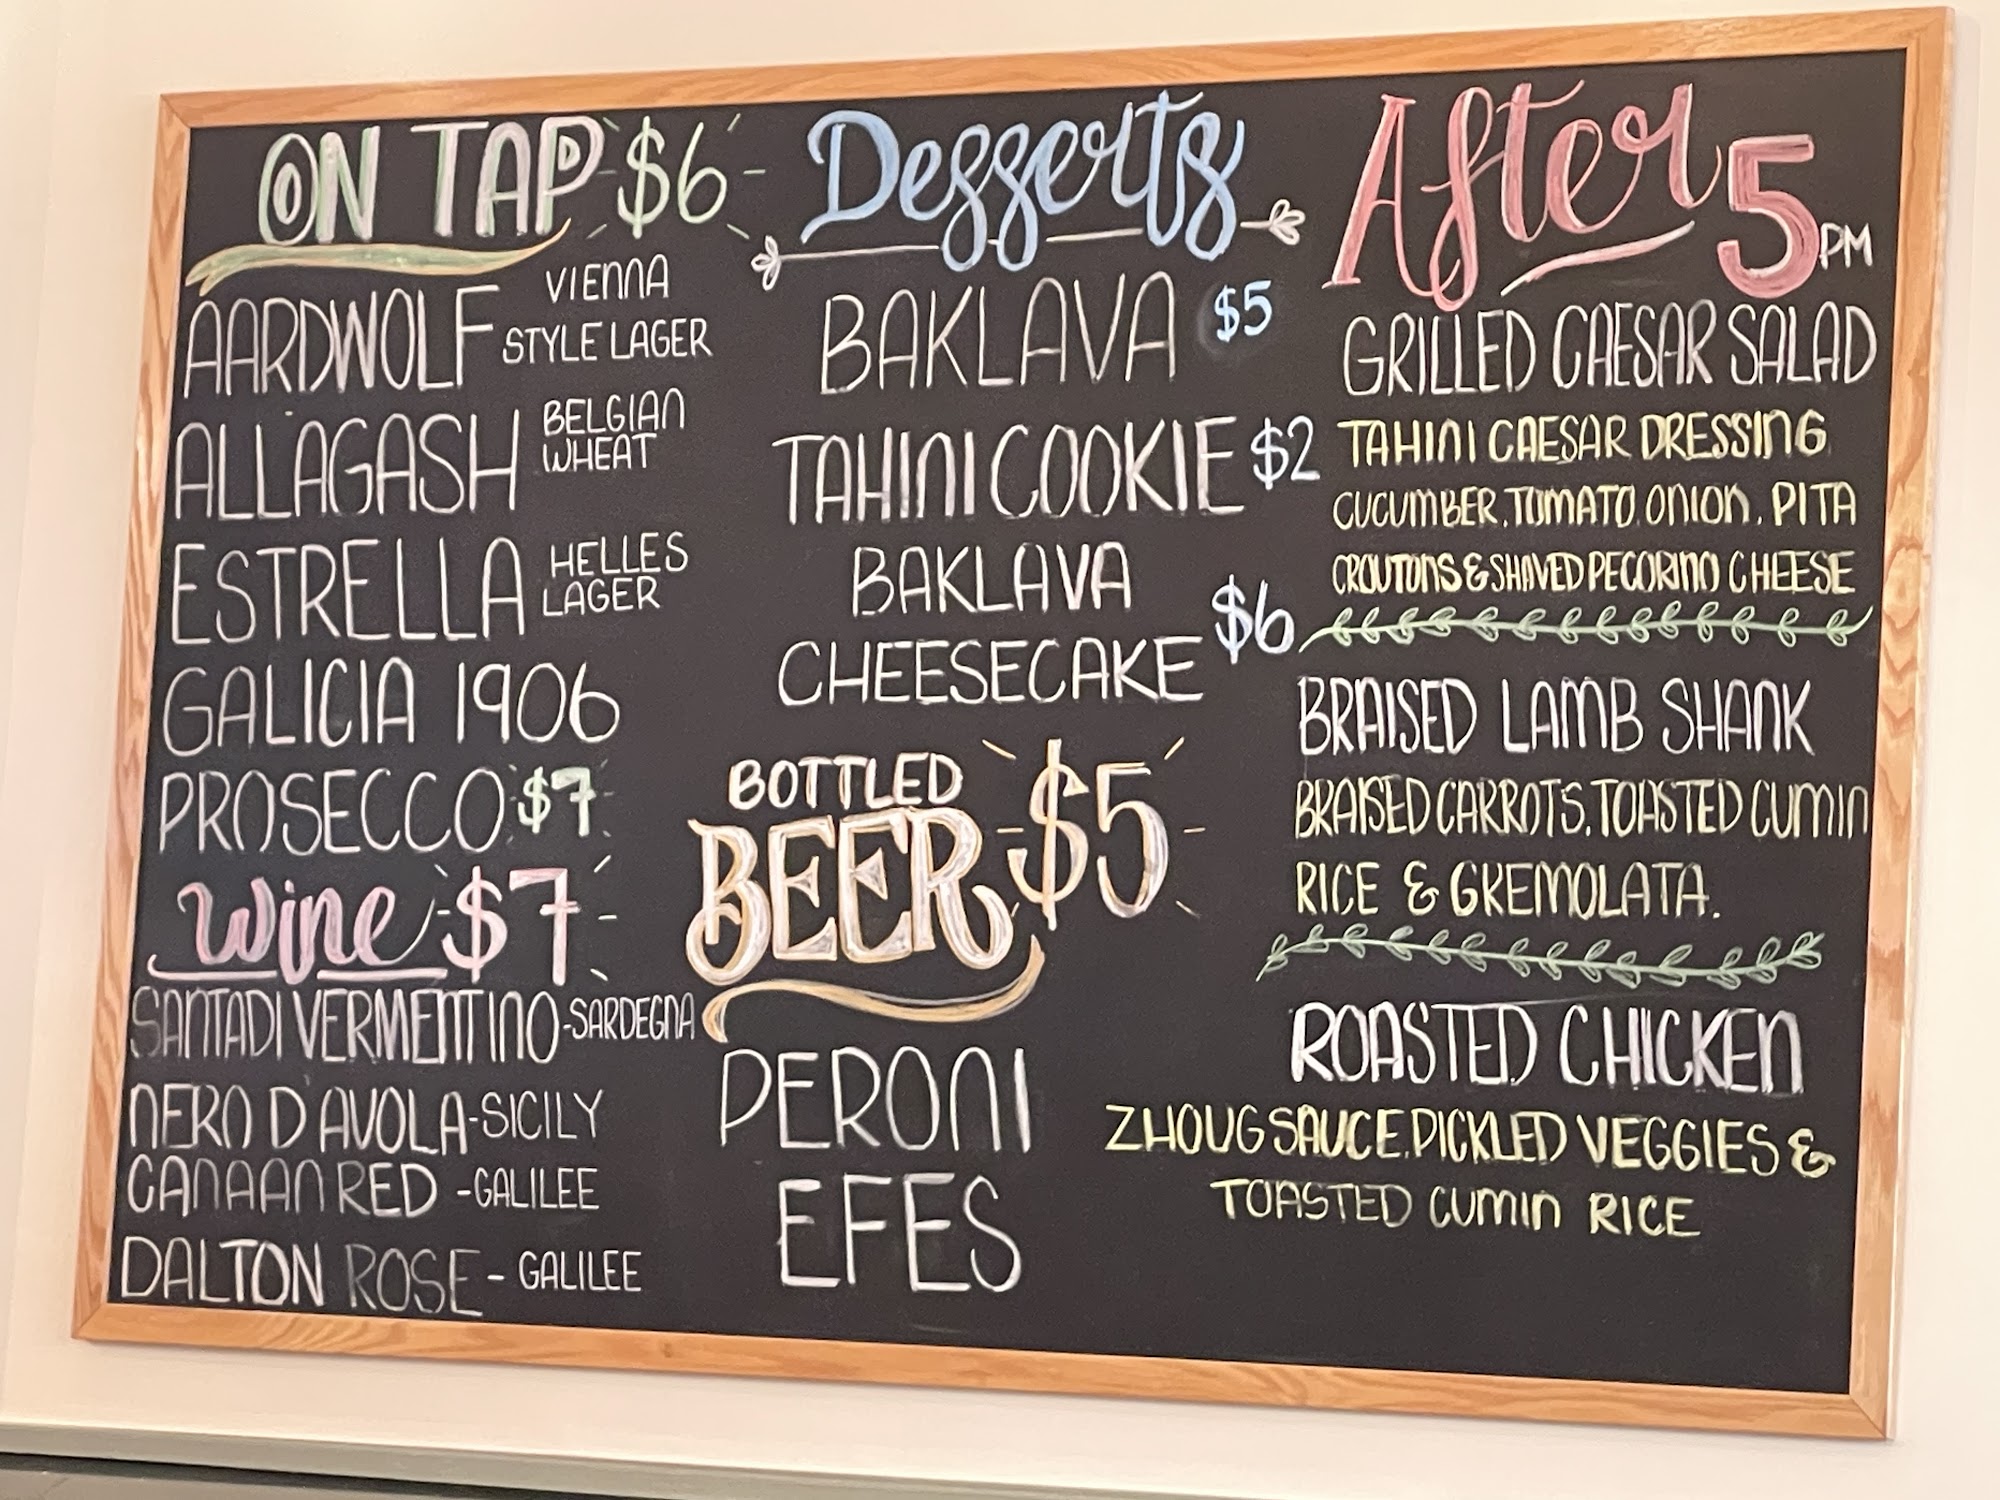 ON TAP $6
AARDWOLF VIENNA
STYLE LAGER
ALLAGASH BELGIAN
WHEAT
ESTRELLA HELLES
LAGER
GALICIA 1906
PROSECCO $7
Wine $7
SANTADI VERMENTINO-SARDEGNA
NERO D'AVOLA-SICILY
CANAAN RED -GALILEE
DALTON ROSE - GALILEE
Desserts
BAKLAVA $5
TAHINI COOKIE $2
BAKLAVA
CHEESECAKE $6
BOTTLED
BEER $5
PERONI
EFES
After 5 PM
GRILLED CAESAR SALAD
TAHINI CAESAR DRESSING
CUCUMBER, TOMATO, ONION, PITA
CROUTONS & SHAVED PECORINO CHEESE
BRAISED LAMB SHANK
BRAISED CARROTS, TOASTED CUMIN
RICE & GREMOLATA.
ROASTED CHICKEN
ZHOUG SAUCE, PICKLED VEGGIES &
TOASTED CUMIN RICE